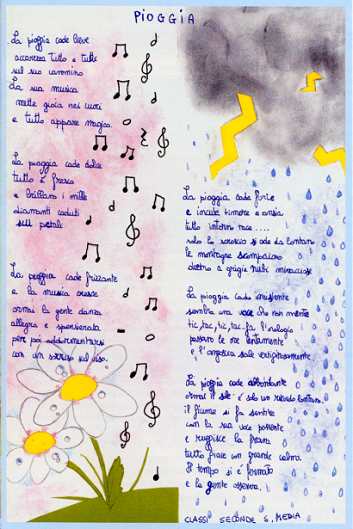 PIOGGIA
La pioggia cade lieve
accarezza tutto e tutti
sul suo cammino
La sua musica
mette gioia nei cuori
e tutto appare magico.
La pioggia cade dolce
tutto è fresco
e brillano i mille
diamanti caduti
sui petali
La pioggia cade frizzante
e la musica cresce
ormai la gente danza
allegra e spensierata
per poi addormentarsi
con un sorriso sul viso.
La pioggia cade forte
e incute timore e ansia
tutto intorno tace ....
solo lo scroscio si ode da lontano
le montagne scompaiono
dietro a grigie nubi minacciose
La pioggia cade insistente
sembra una voce che non mente
tic, tac, tic, tac, fa l'orologio
passano le ore lentamente
e l'angoscia sale vertiginosamente.
La pioggia cade abbondante
ormai il sole è solo un ricordo lontano
il fiume si fa sentire
con la sua voce possente
e ruggisce la frana
tutto tace un grande calma.
Il tempo si è fermato
e la gente osserva.
CLASSI SECONDE S. MEDIA